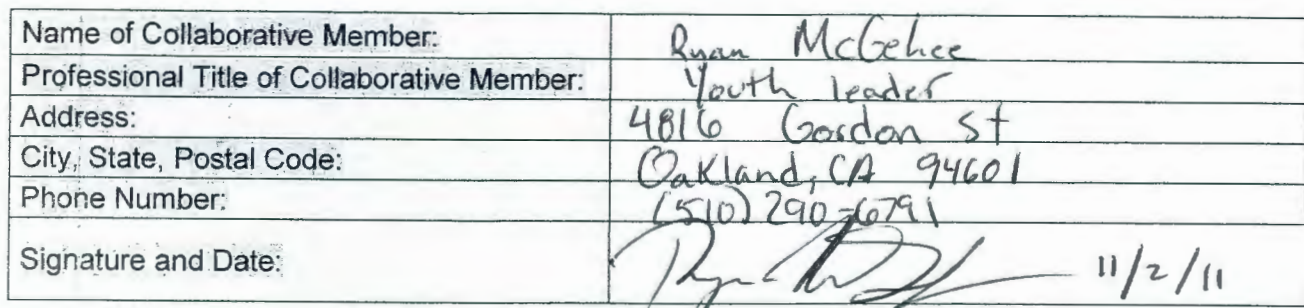 Name of Collaborative Member: Ryan McGehee
Professional Title of Collaborative Member: Youth leader
Address: 4816 Gordon St
City, State, Postal Code: Oakland, CA 94601
Phone Number: (510) 290-6791
Signature and Date: 11/2/11